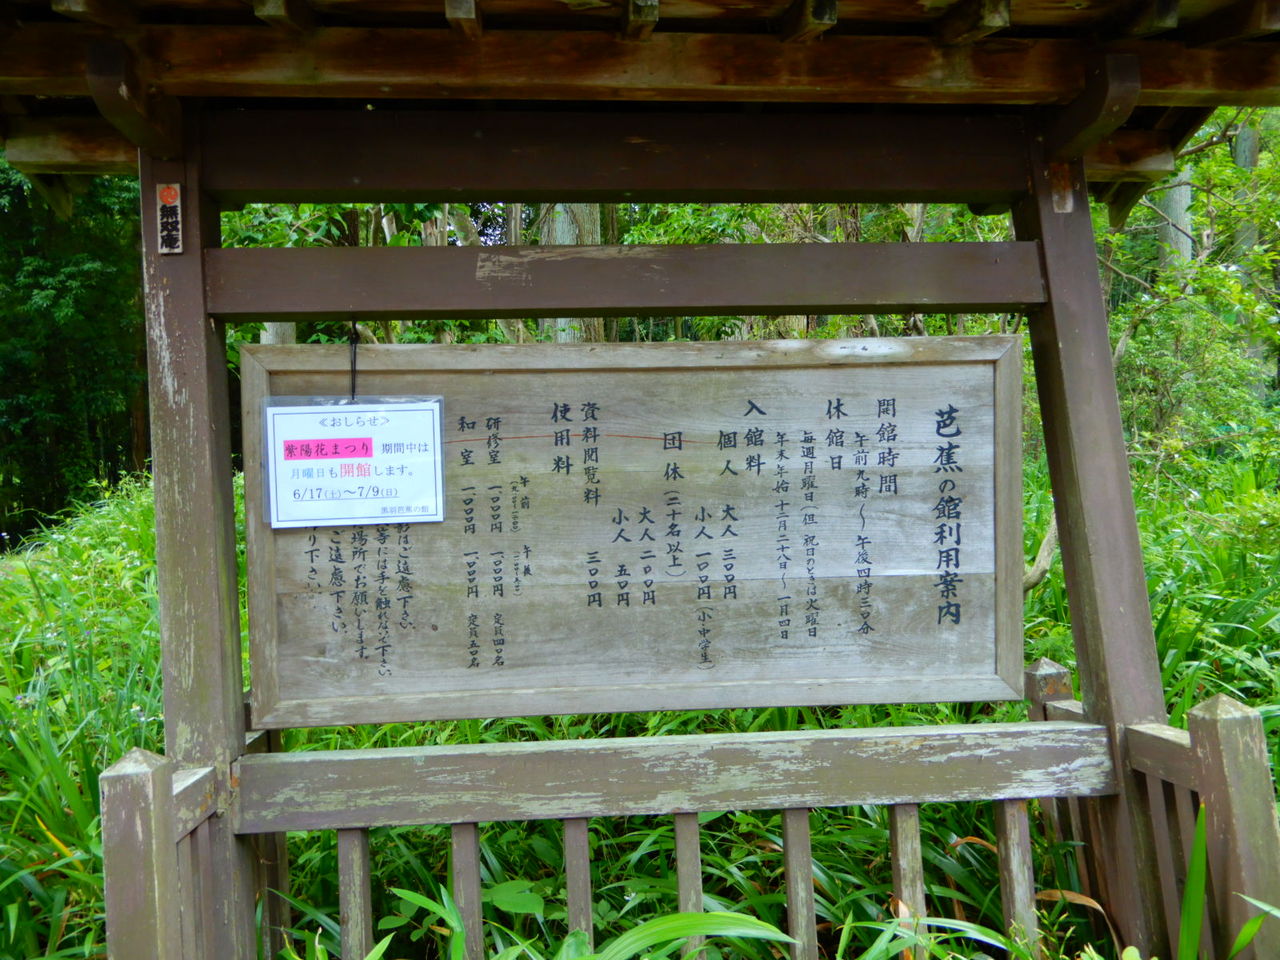 芭蕉の館利用案内
開館時間
午前九時～午後四時三〇分
休館日
毎週月曜日(但し祝日のときは火曜日
年末年始 十二月二十八日～一月四日
入館料
個人 大人 三〇〇円
小人 一〇〇円(小・中学生)
団体(二十名以上)
大人 二〇〇円
小人 五〇円
資料閲覧料 三〇〇円
使用料
午前 午後
研修室 一〇〇〇円 一〇〇〇円 定員四〇名
和室 一〇〇〇円 一〇〇〇円 定員五〇名
はご遠慮下さい。
等には手を触れないで下さい。
場所でお願いします。
ご遠慮下さい。
り下さい。
≪おしらせ≫
紫陽花まつり 期間中は
月曜日も開館します。
6/17(土)～7/9(日)
黒羽芭蕉の館
無双庵